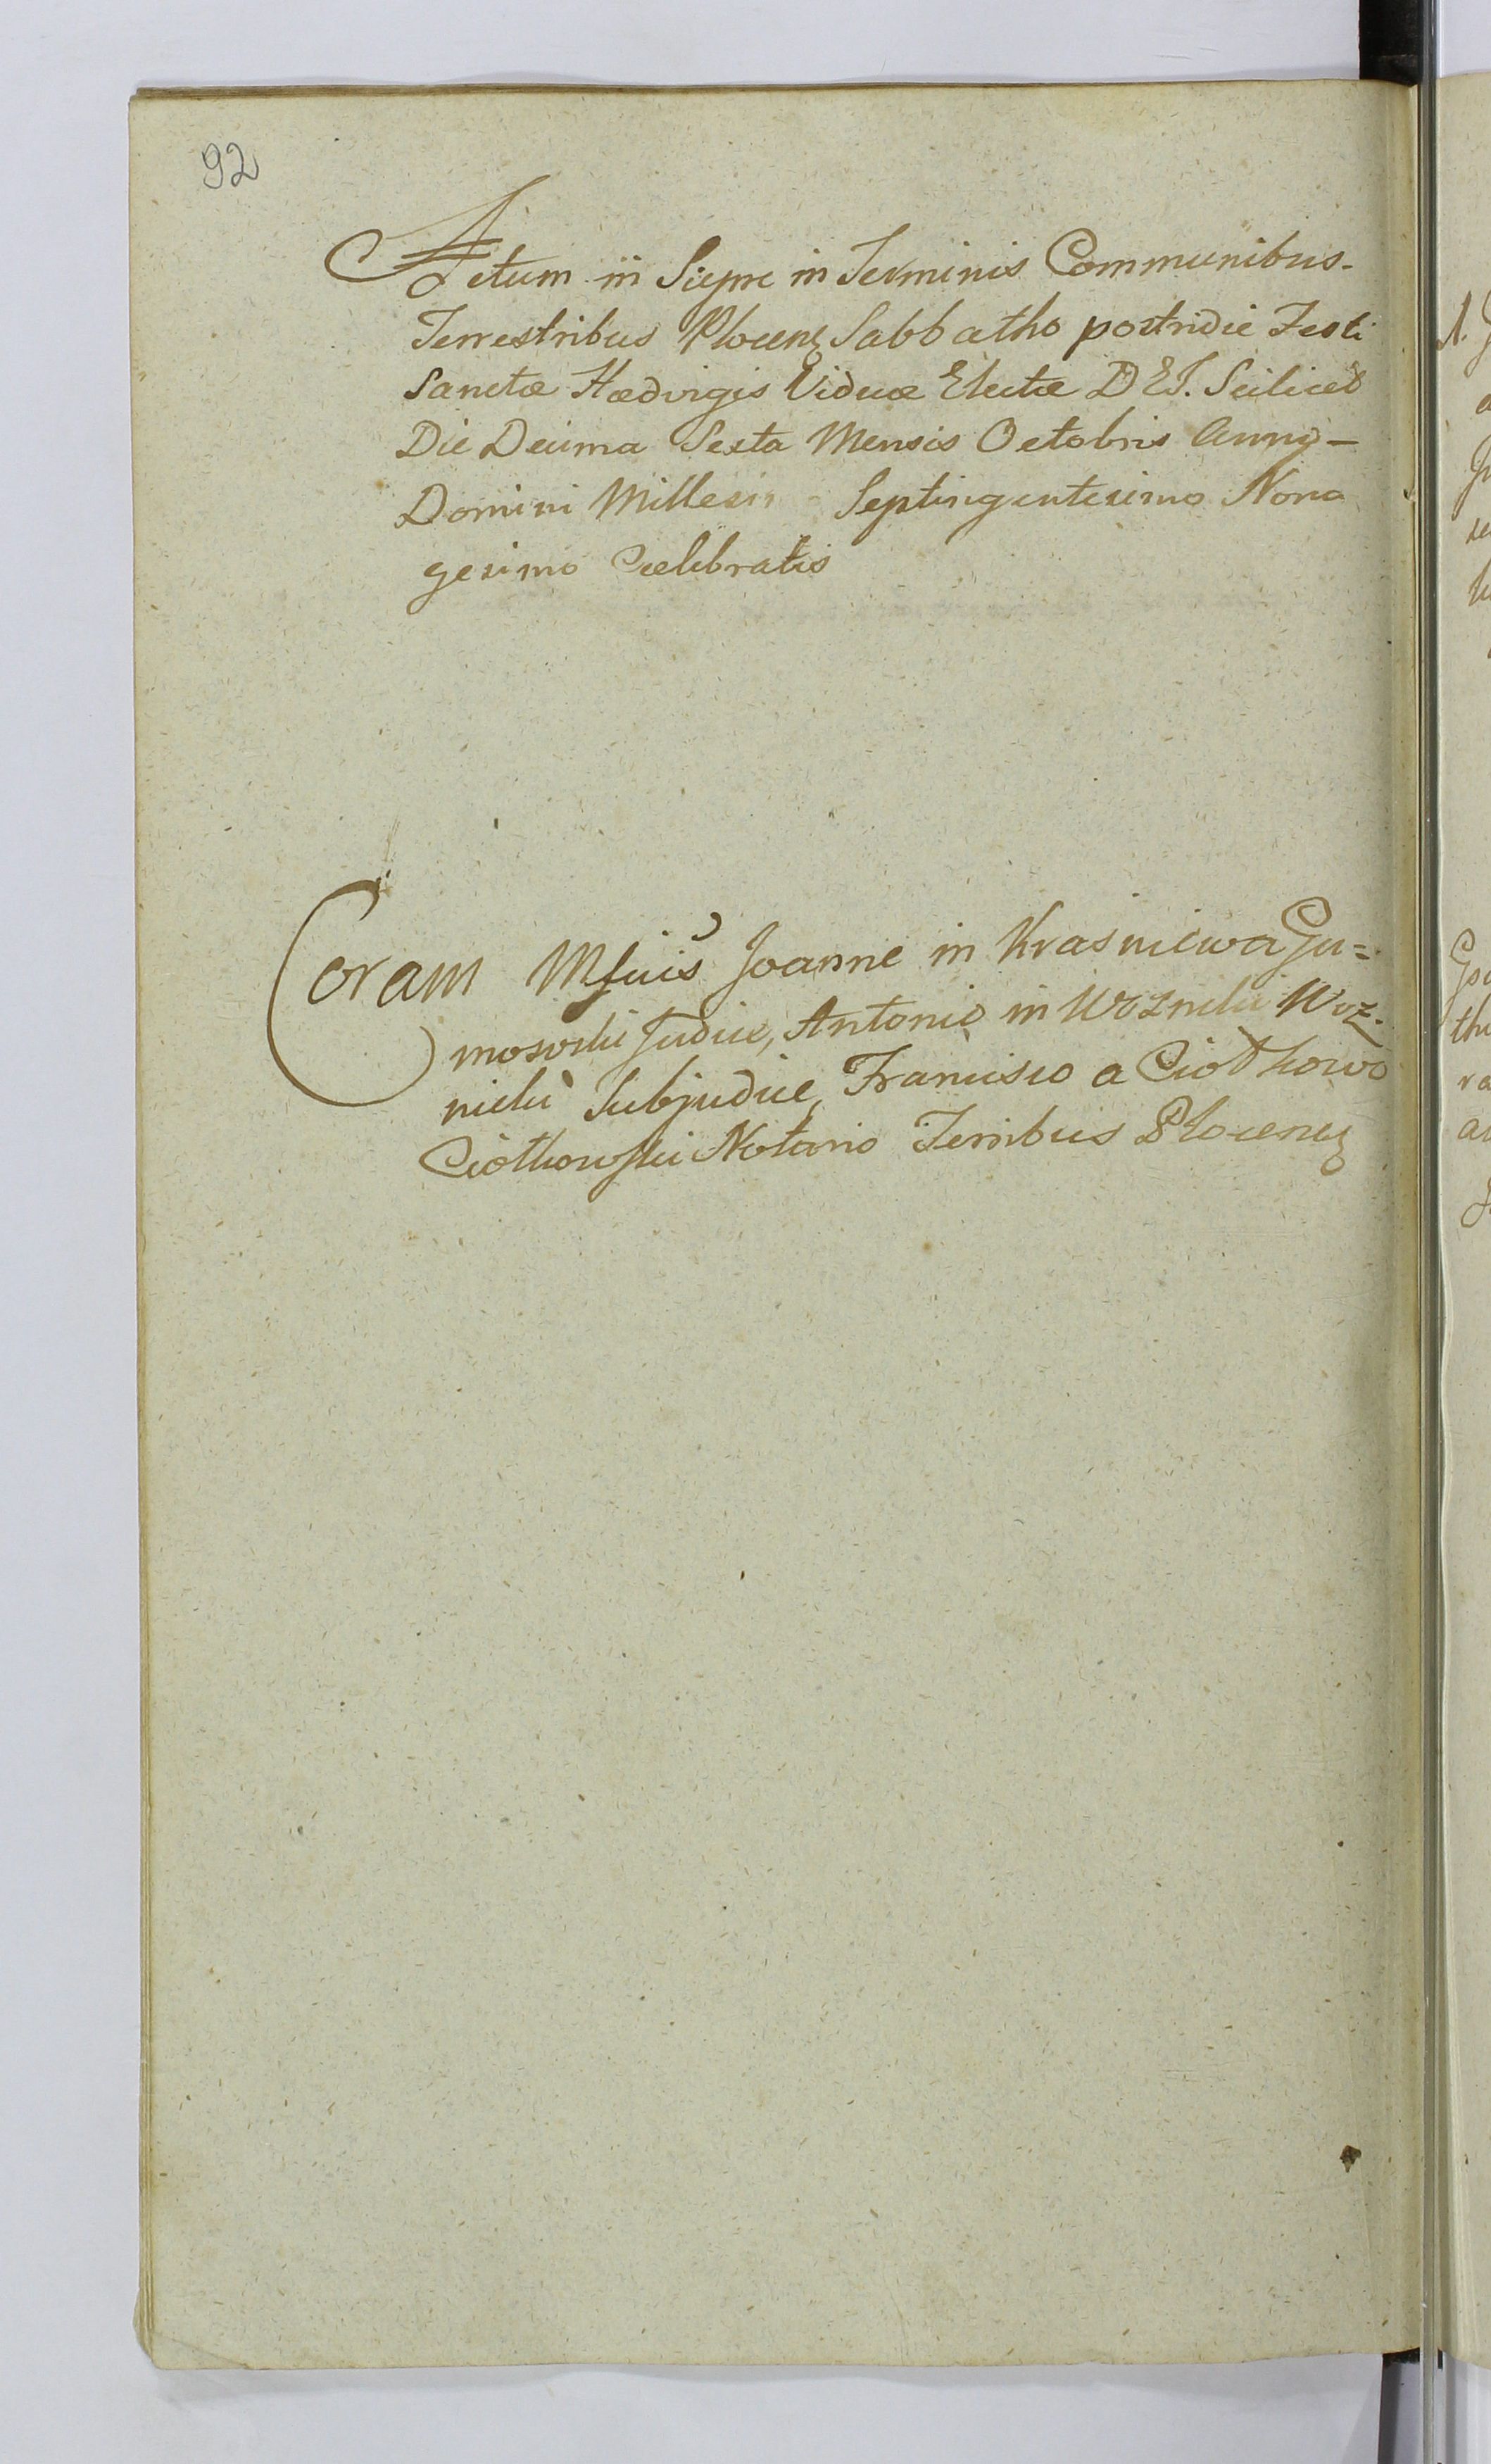 92
Actum in Siepre in Terminis Communibus-
Terrestribus Plocens Sabbatho postridie Festi
Sanctæ Hædvigis Viduæ Electæ DEI. Scilicet
Die Decima Sexta Mensis Octobris Anno-
Domini Septingentesimo Nona
gesimo Cælebratis
Coram Joanne in Krasniewa Gu=
mososki Judice, Antonio in Woznicki Woz-
nicki Subjudice, Francisco a Ciotkowo
Ciotkowski Notario Terribus Plocens